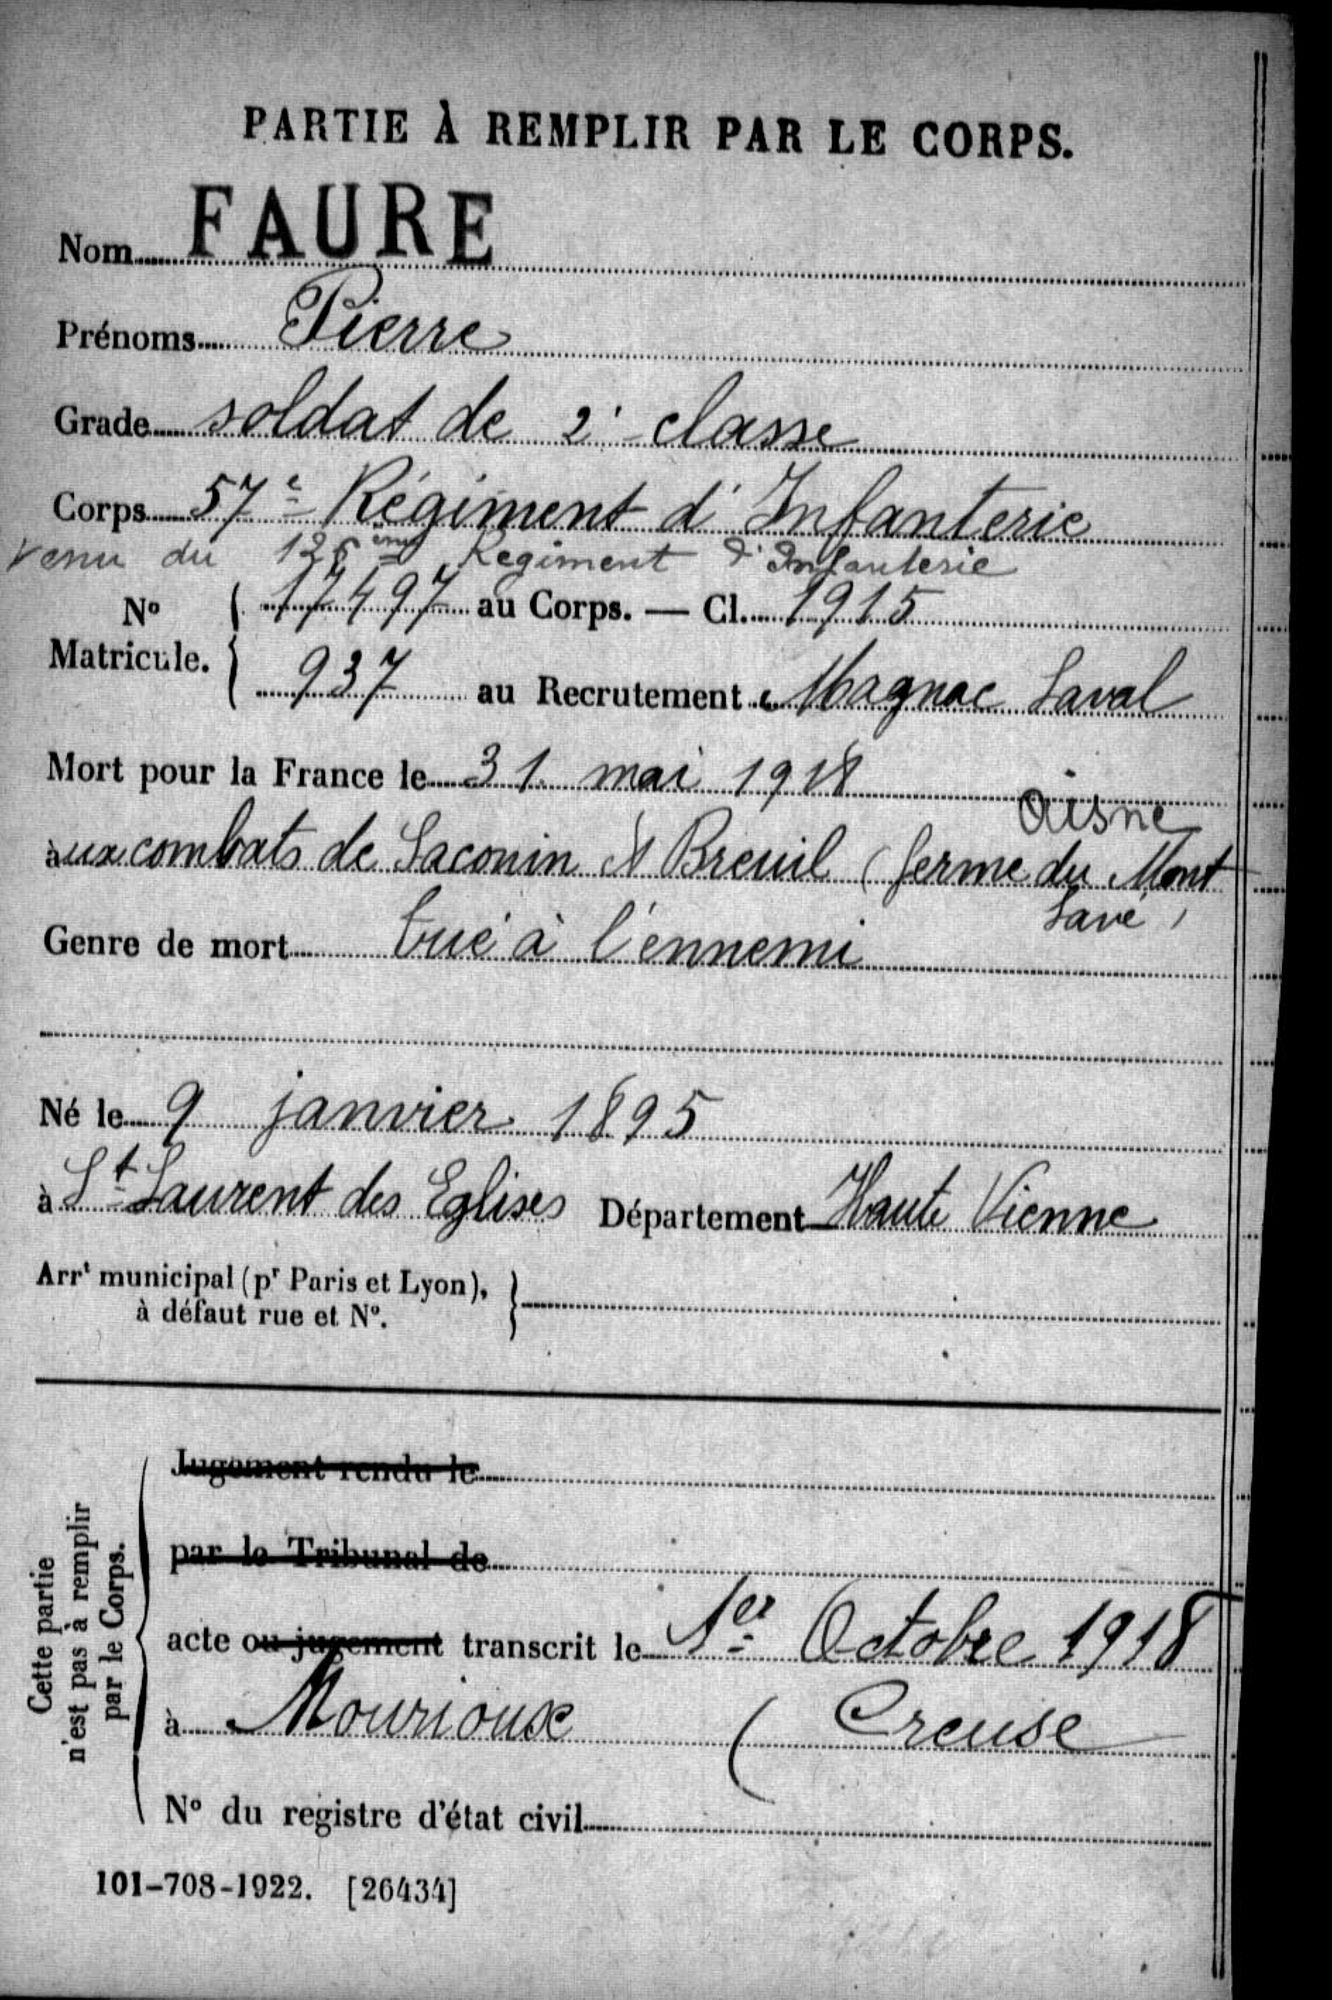 PARTIE À REMPLIR PAR LE CORPS.
Nom FAURE
Prénoms Pierre
Grade soldat de 2e classe
Corps 57e Régiment d'Infanterie
venu du 126ème Régiment d'Infanterie
No Matricule. { 17497 au Corps. — Cl. 1915
937 au Recrutement Magnac Laval
Mort pour la France le 31 mai 1918
Aisne
aux combats de Saconin et Breuil (ferme du Mont
Lavé)
Genre de mort tué à l'ennemi
Né le 9 janvier 1895
à St Laurent des Eglises Département Haute Vienne
Arrt municipal (pr Paris et Lyon),
à défaut rue et No.
Cette partie
n'est pas à remplir
par le Corps.
Jugement rendu le
par le Tribunal de
acte ou jugement transcrit le 1er Octobre 1918
à Mourioux (Creuse
No du registre d'état civil
101-708-1922. [26434]